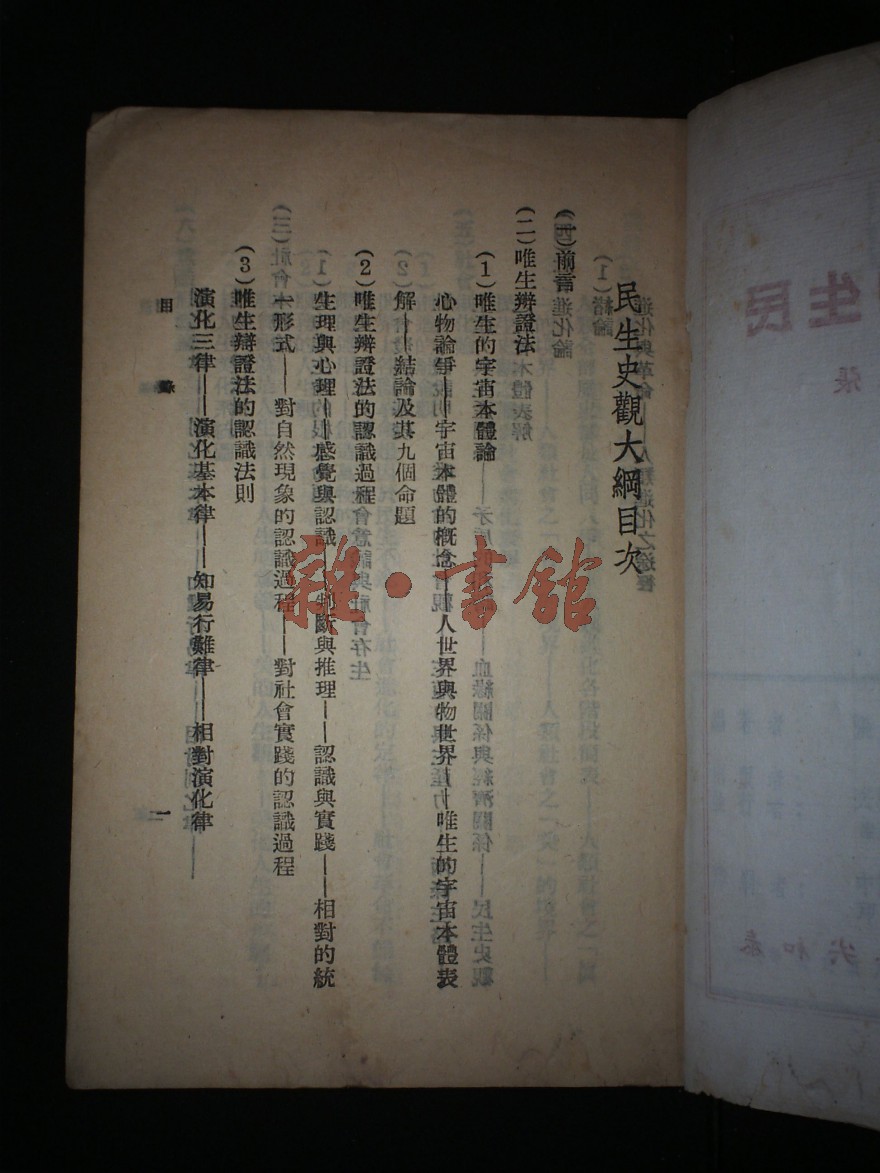 民生史觀大綱目次
前言
(二)唯生辯證法
(1)唯生的宇宙本體論
心物論爭——宇宙本體的概念——人世界與物世界——唯生的宇宙本體表
解——結論及其九個命題
(2)唯生辯證法的認識過程
生理與心理——感覺與認識——判斷與推理——認識與實踐——相對的統
一形式——對自然現象的認識過程——對社會實踐的認識過程
(3)唯生辯證法的認識法則
演化三律——演化基本律——知易行難律——相對演化律——
目錄
一
雜·書館
生民
張